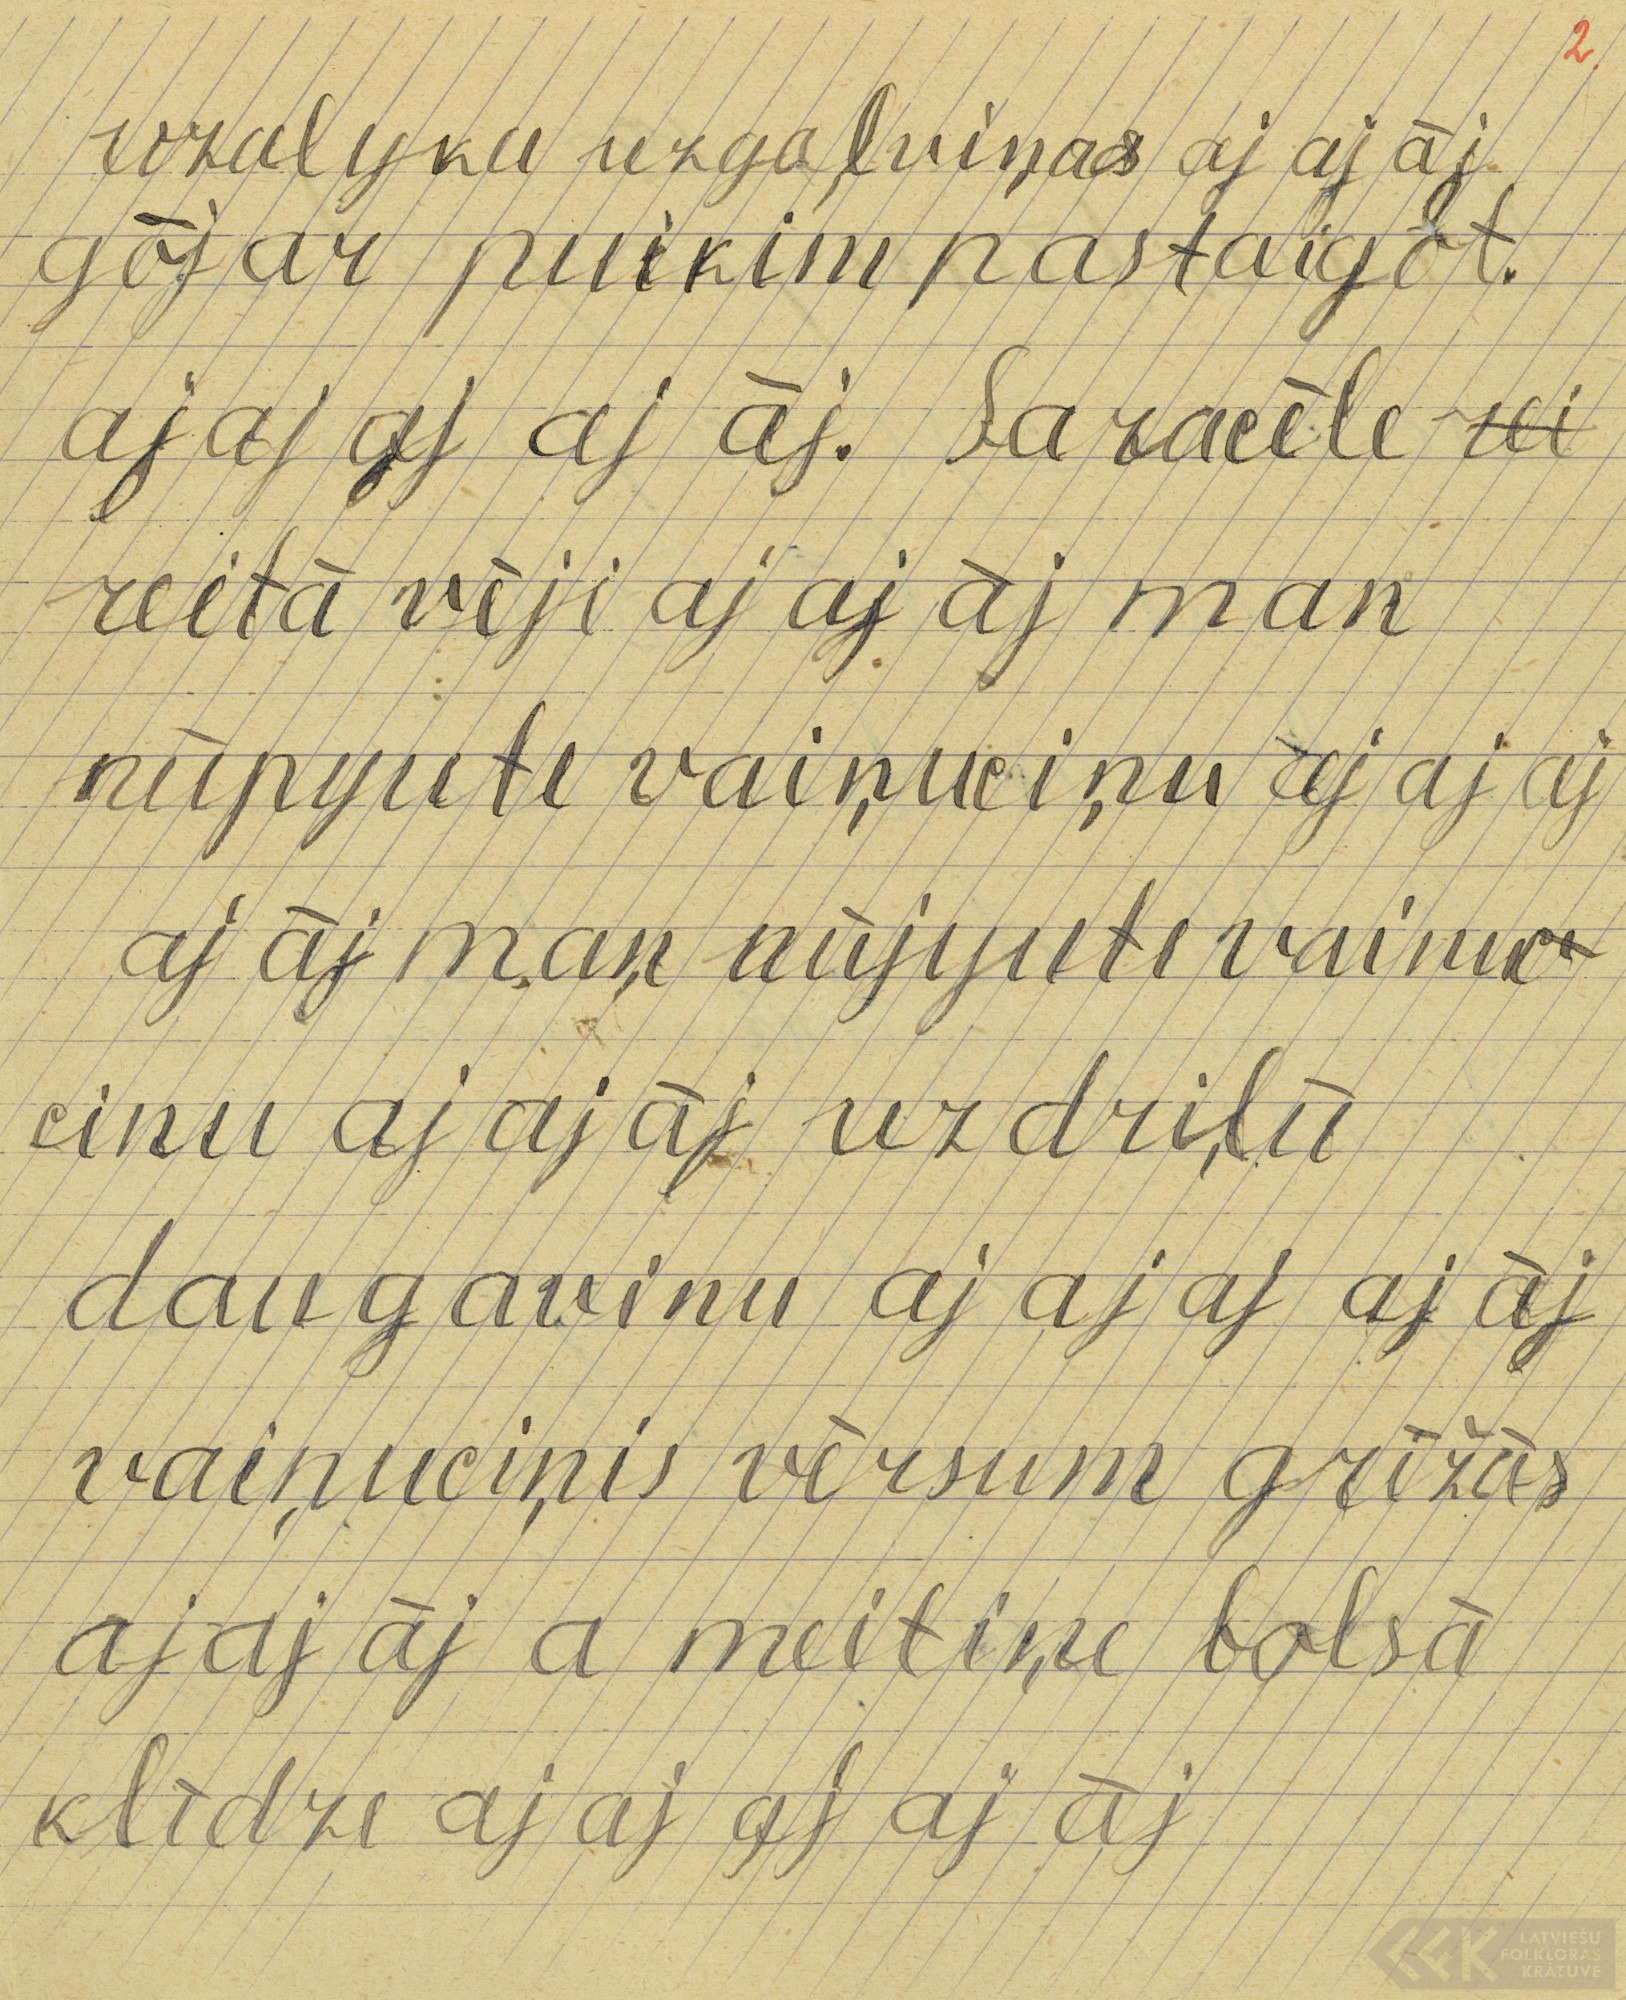 2.
vozalyku uzgaļviņas aj aj āj
gōj ar puikim pastaigōt.
aj aj aj aj āj. Sazacēle rei
reitā vēji aj aj āj man
nūpyute vaiņuciņu aj aj aj
aj āj man nūjyute vainuc
cinu aj aj āj uz driļū
daugavinu aj aj aj aj āj
vaiņuciņis vērsum grīžās
aj aj āj a meitiņe bolsā
klīdze aj aj aj aj āj
LATVIEŠU
FOLKLORAS
KRĀTUVE